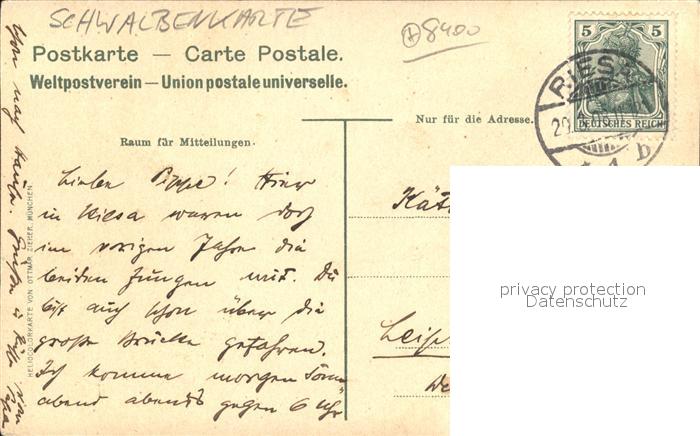 SCHWALBENKARTE
8400
Postkarte — Carte Postale.
Weltpostverein — Union postale universelle.
5 5
RIESA
DEUTSCHES REICH
b
Nur für die Adresse.
Raum für Mitteilungen.
Lieben Püppe! Hier
in Riesa waren doch
im vorigen Jahre die
beiden Jungen mit. Du
bist auch schon über die
große Brücke gefahren.
Ich komme morgen Sonn-
abend abends gegen 6 Uhr
von nach Hause. Grüße u Küsse von
Papa
HELIOCOLORKARTE VON OTTMAR ZIEHER, MÜNCHEN
Kät
Leip
privacy protection
Datenschutz